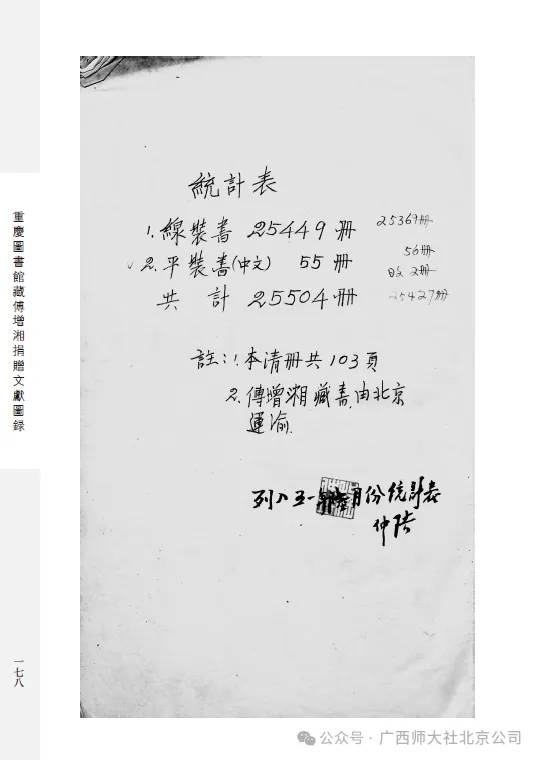 重慶圖書館藏傅增湘捐贈文獻圖録
統計表
1. 線裝書 25449 册 25369册
2. 平裝書(中文) 55 册 56册
2册
共計 25504 册 25427册
註：1. 本清册共103頁
2. 傅增湘藏書,由北京
運渝.
列入五一年 月份統計表
一七八
公众号 · 广西师大社北京公司